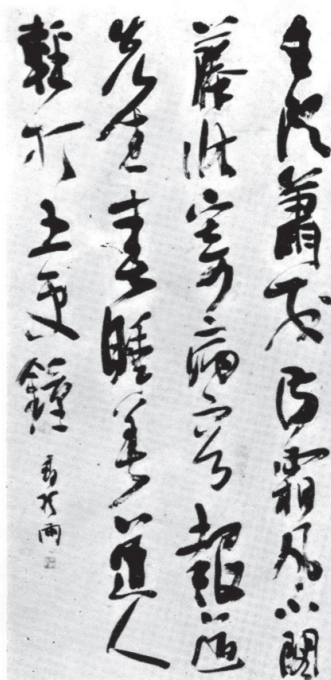 白頭蕭散滿霜風小閣
藤牀寄病容報道
先生春睡美道人
輕打五更鐘